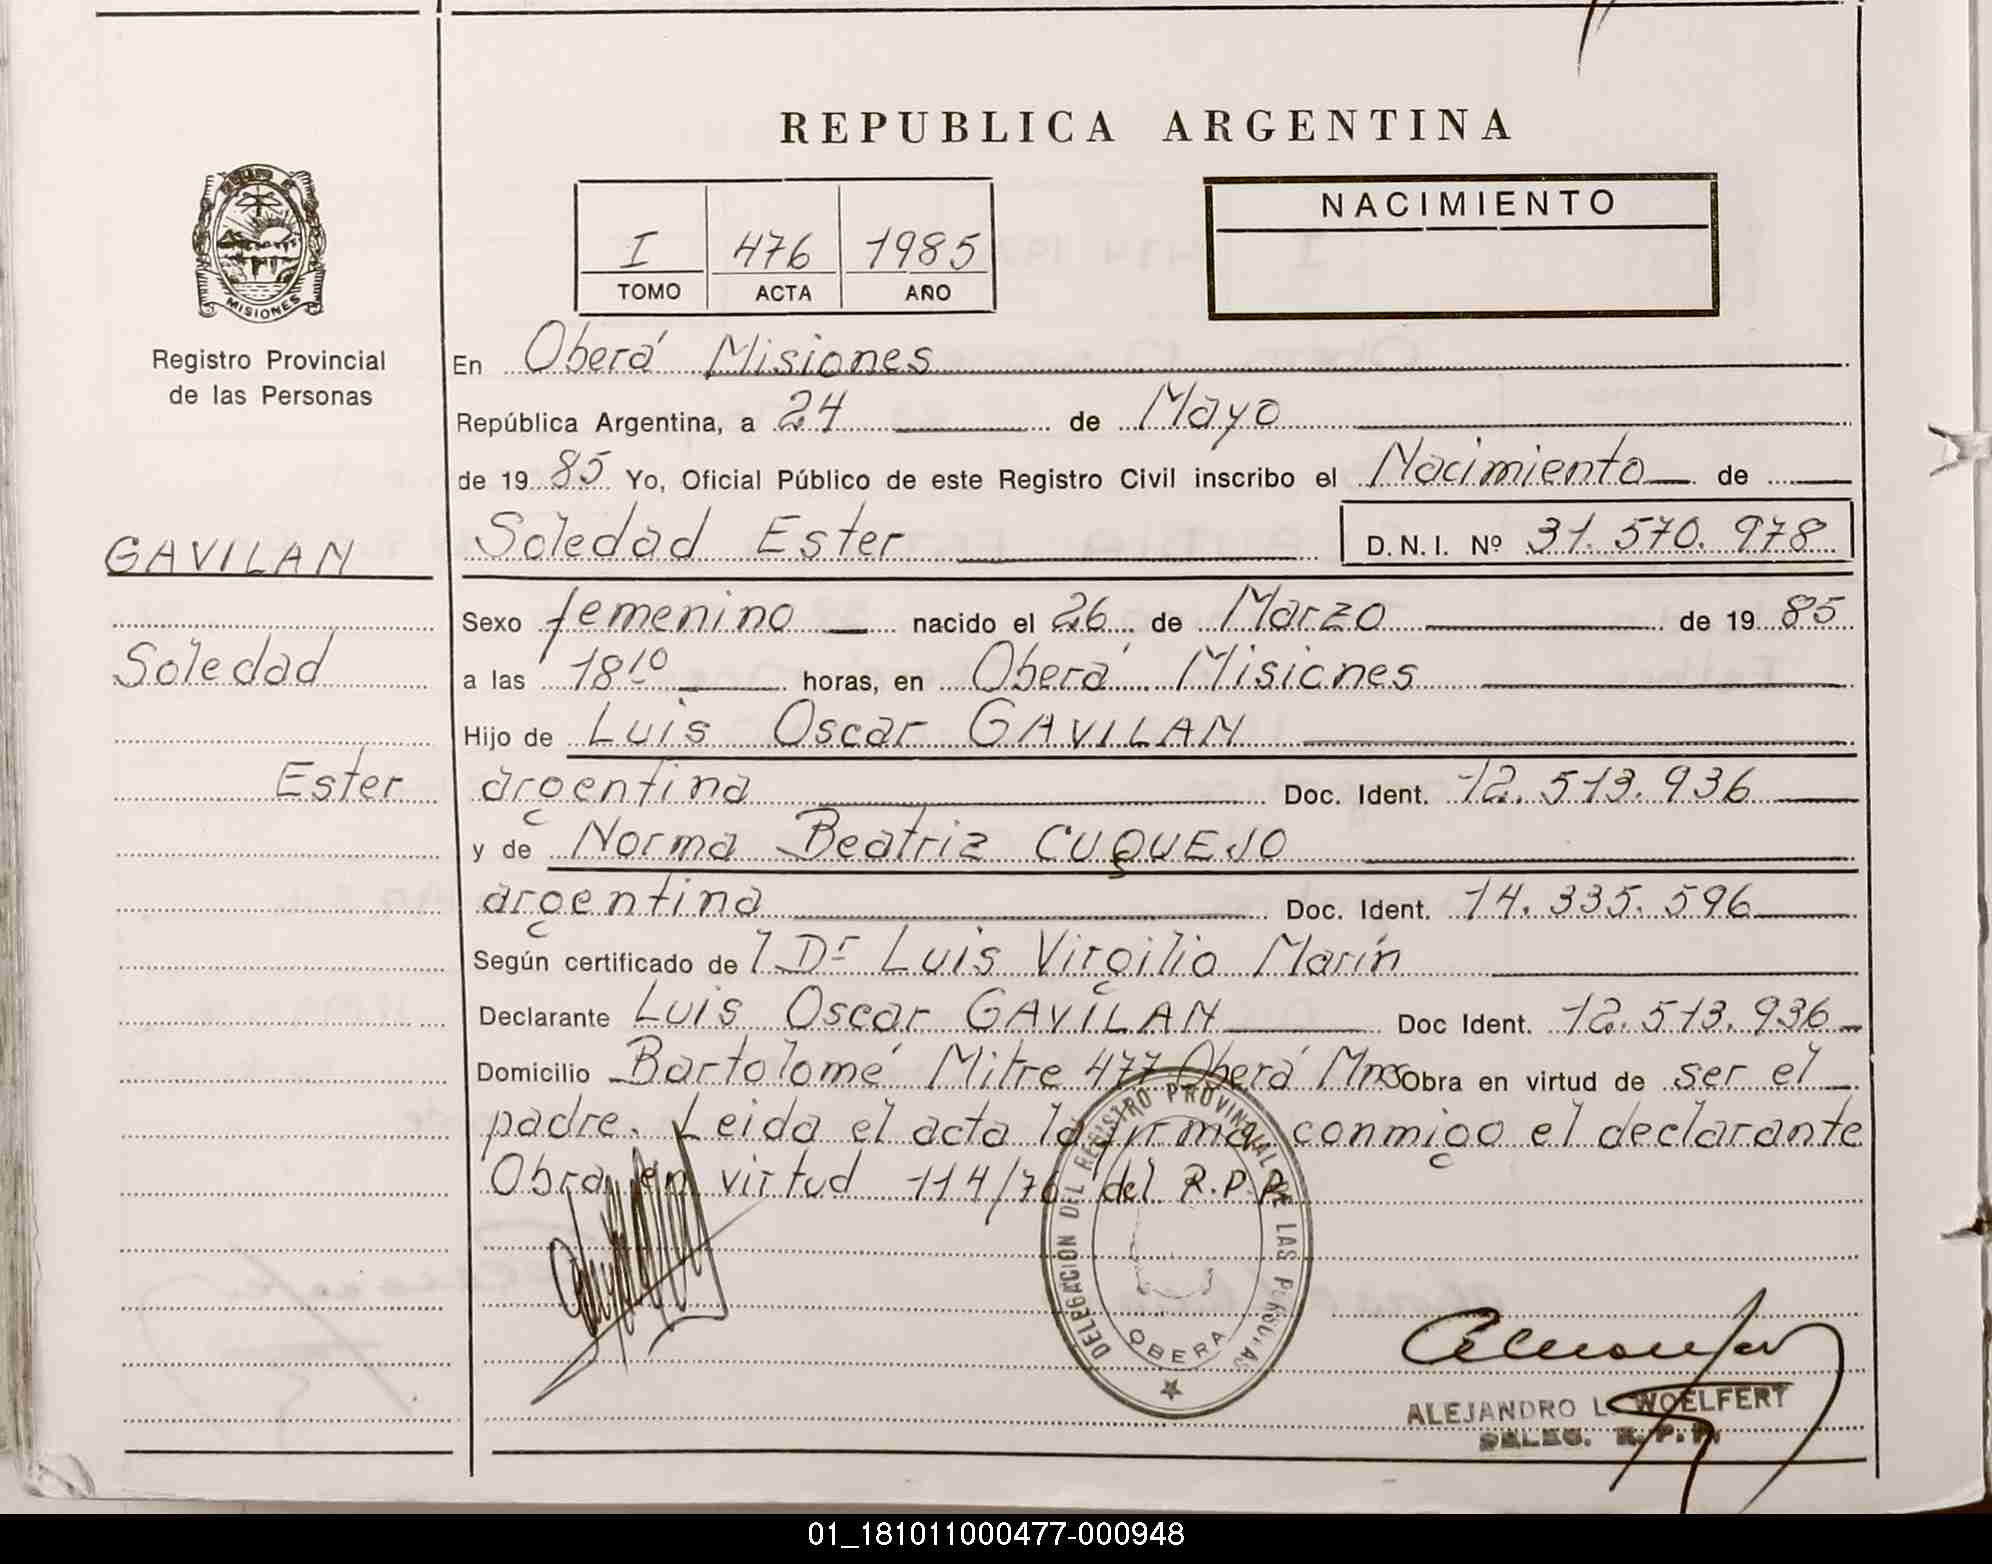 REPUBLICA ARGENTINA
NACIMIENTO
I 476 1985
TOMO ACTA AÑO
MISIONES
Registro Provincial
de las Personas
En Oberá Misiones
República Argentina, a 24 de Mayo
de 19 85 Yo, Oficial Público de este Registro Civil inscribo el Nacimiento de
GAVILAN
Soledad Ester D.N.I. Nº 31.570.978
Sexo femenino nacido el 26 de Marzo de 19 85
Soledad
a las 18 10 horas, en Oberá Misiones
Hijo de Luis Oscar GAVILAN
Ester
argentina Doc. Ident. 12.513.936
y de Norma Beatriz CUQUEJO
argentina Doc. Ident. 14.335.596
Según certificado de l Dr Luis Virgilio Marín
Declarante Luis Oscar GAVILAN Doc Ident. 12.513.936
Domicilio Bartolomé Mitre 477 Oberá Mnes Obra en virtud de ser el
padre. Leida el acta la firma conmigo el declarante
Obra en virtud 114/76 del R.P.P.
DELEGACION DEL REGISTRO PROVINCIAL DE LAS PERSONAS
OBERA
ALEJANDRO L. WOELFERT
DELEG. R.P.P.
01_181011000477-000948